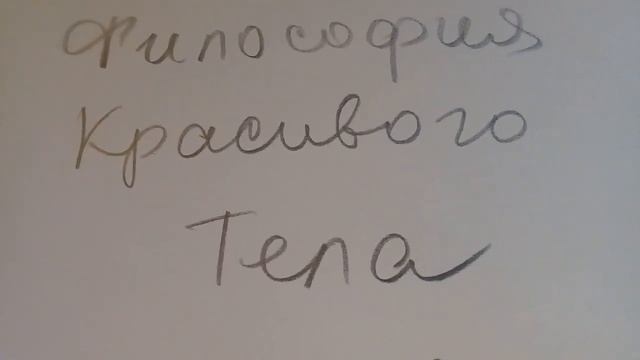 Философия
Красивого
Тела